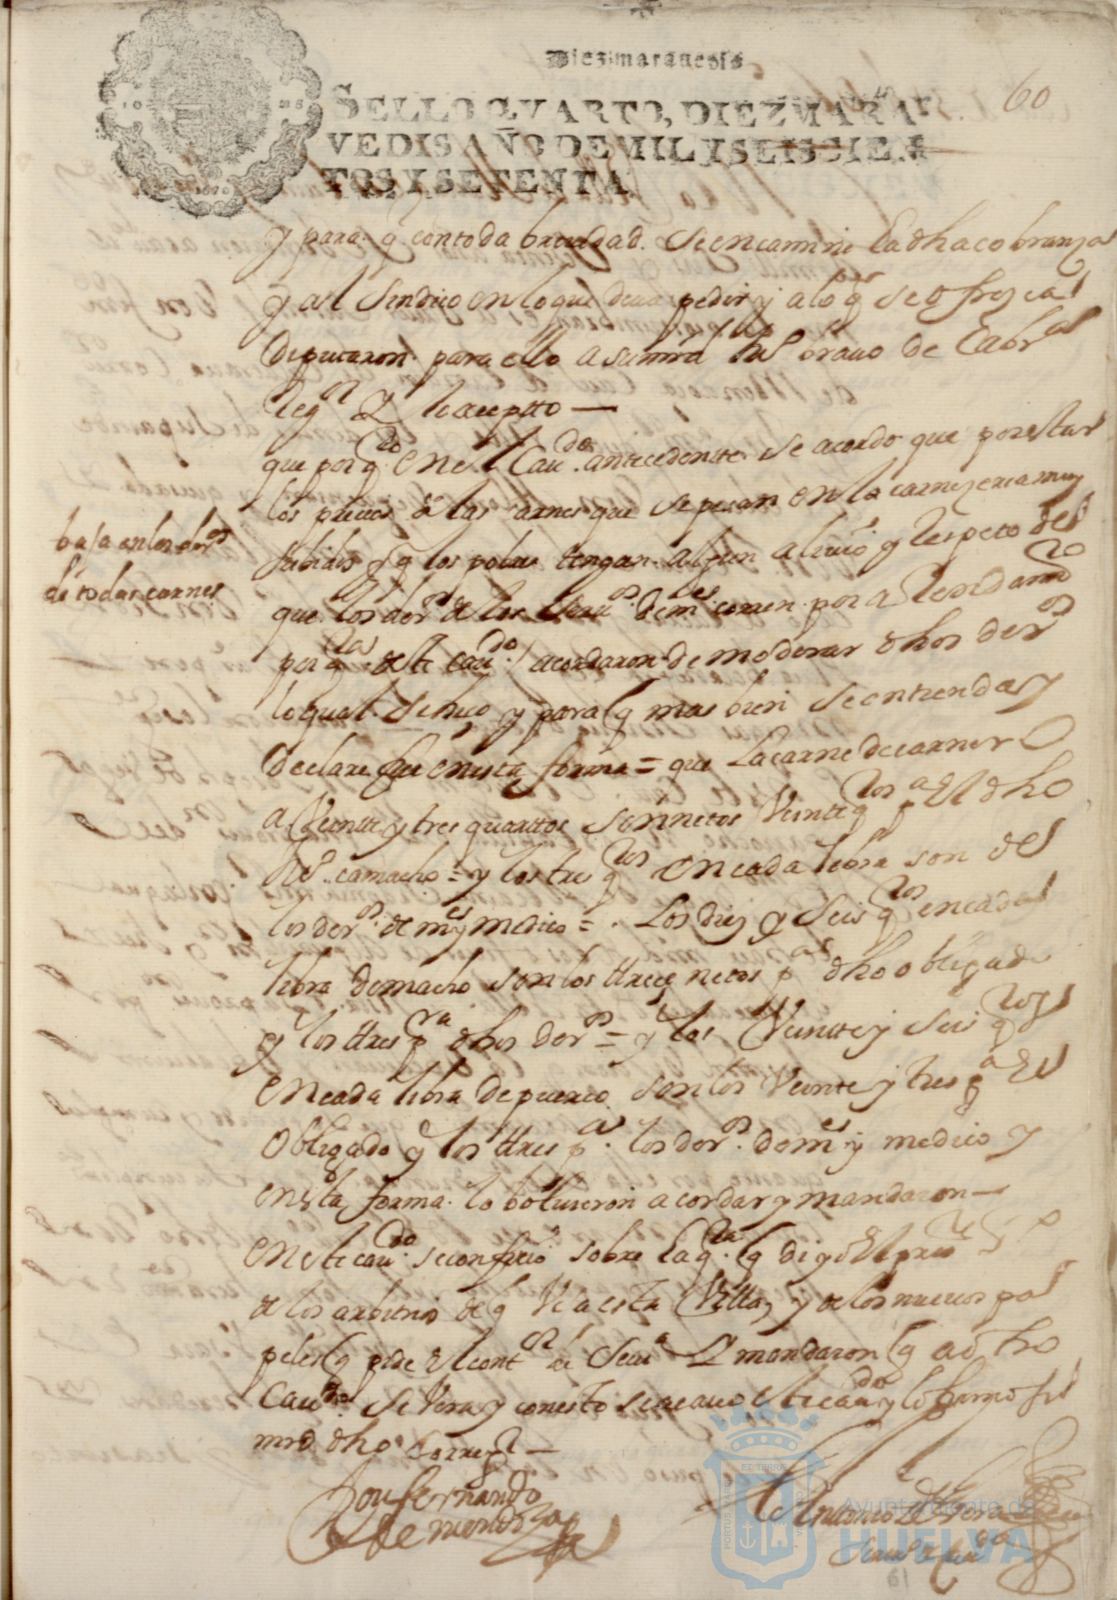 Diez marauedis
60
SELLO QVARTO, DIEZ MARA
VEDIS AÑO DE MIL Y SEISCIEN
TOS Y SETENTA
y para q con toda breuedad se encamine la dha cobranza
y al sindico en lo que deua pedir y a lo q se ofrezca
Diputaron para ello a su mrd brauo de Cabr
Reg.or Y lo acepto —
que por q.do en el Cau.do antecedente se acordo que por estar
los precios de las carnes que se pesan en la carnezeria muy
subidos y q los pobres tengan algun aliuio y respeto de
que los der.os de los seru.os de m.es corren por arrendam.to
por q.ta deste cau.do acordaron de moderar dhos der.os
lo qual se hiço y para q mas bien se entienda y
declare fue en esta forma = que la carne de carnero
a Veinte y tres quartos son netos Veinte q.tos p.a El dho
camacho = y los tres q.tos en cada libra son de
los der.os de m.es y medio = Los diez y seis q.tos en cada
libra de macho son los trece netos p.a dho obligado
y los tres p.a dhos der.os = y los Veinte y seis q.tos
en cada libra de puerco son los Veinte y tres p.a El
Obligado y los tres p.a los der.os de m.es y medio y
en esta forma lo boluieron a acordar y mandaron —
En este cau.do se confirio sobre la q.ta q dio
de los arbitrios de q Vsa esta Villa y de los nueuos pa
peles q pide el cont.or de Seui.a Y mandaron q a dho
Cau.do se Vera y con esto se acauo este cau.do y lo firmo su
mrd dho Correg.or —
baja en los der.os
de todas carnes
Don fernando
de mendoza
Antonio de
61
Ayuntamiento de
HUELVA